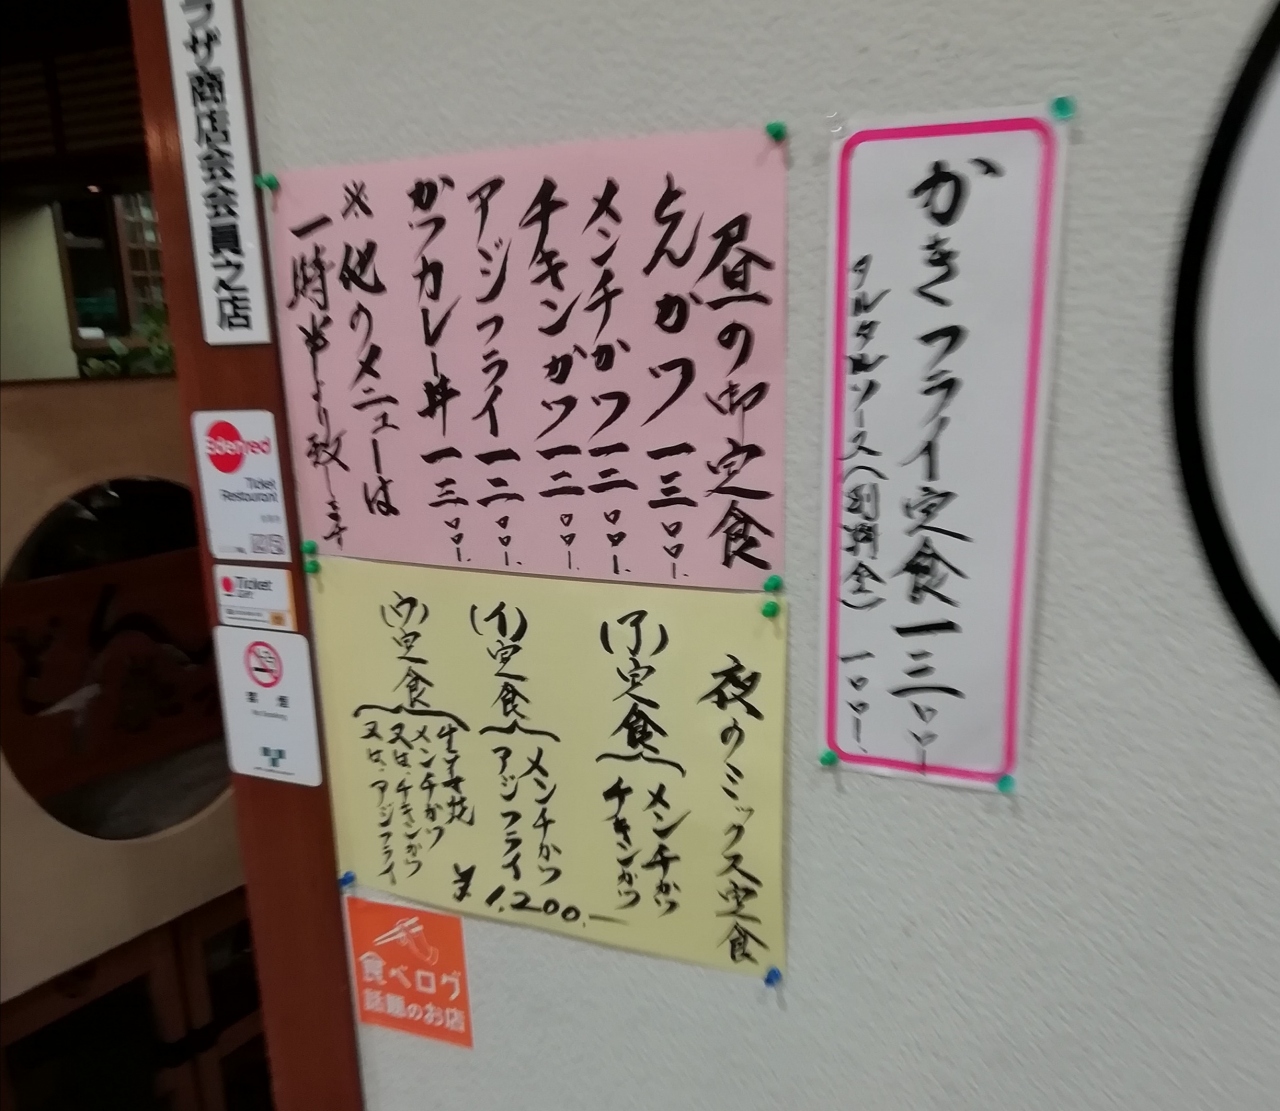 かきフライ定食一三〇〇
タルタルソース(別料金)一〇〇
昼の御定食
とんかつ 一三〇〇
メンチかつ 一二〇〇
チキンかつ 一二〇〇
アジフライ 一二〇〇
かつカレー丼 一三〇〇
※他のメニューは
一時半より致します
夜のミックス定食
(ア)定食
メンチかつ
チキンかつ
(イ)定食
メンチかつ
アジフライ
(ウ)定食
生姜焼
メンチかつ
又は、チキンかつ
又は、アジフライ
¥1,200.—
ラザ商店会会員之店
Edenred
Ticket
Restaurant
Ticket
禁煙
No Smoking
食べログ
話題のお店